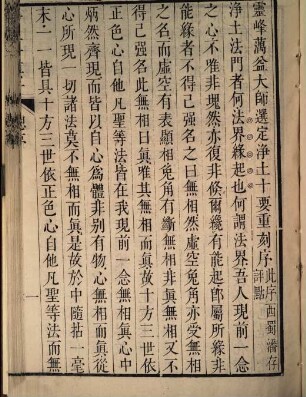 靈峰蕅益大師選定淨土十要重刻序 此序西蜀潘存評點
淨土法門者何法界緣起也何謂法界吾人現前一念
之心不唯非塊然亦復非倏爾纔有能起卽屬所緣非
能緣者不得已強名之曰無相然虛空兔角亦受無相
之名而虛空有表顯相兔角有斷無相非眞無相又不
得已強名此無相曰眞雖其無相而眞故十方三世依
正色心自他凡聖等法皆在我現前一念無相眞心中
炳然齊現而皆以自心爲體非别有物心無相而眞從
心所現一切諸法莫不無相而眞是故於中隨拈一毫
末一一皆具十方三世依正色心自他凡聖等法而無